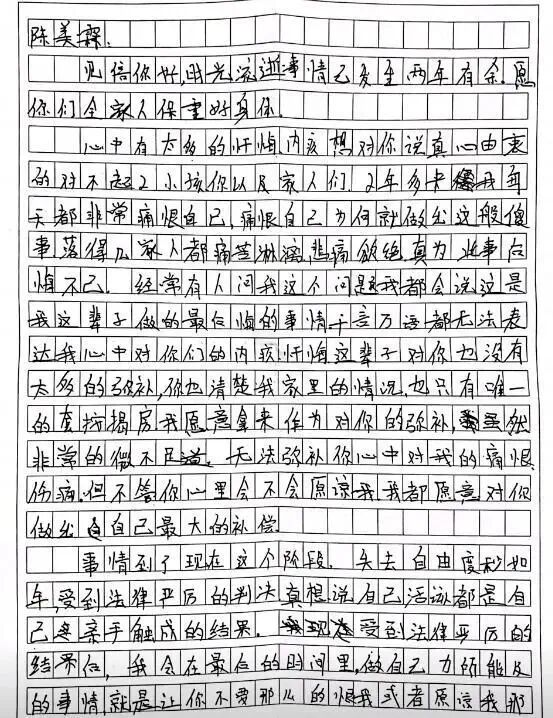 陈美霖.
见信你好,时光流逝事情已发生两年有余.愿
你们全家人保重好身体.
心中有太多的忏悔内疚想对你说真心由衷
的对不起2小孩你以及家人们.2年多来我每
天都非常痛恨自己,痛恨自己为何就做出这般傻
事,落得几家人都痛苦淋漓,悲痛欲绝真为此事后
悔不已.经常有人问我这个问题我都会说这是
我这辈子做的最后悔的事情千言万语都无法表
达我心中对你们的内疚忏悔这辈子对你也没有
太多的弥补,你也清楚我家里的情况.也只有唯一
的套按揭房我愿意拿来作为对你的弥补,虽然
非常的微不足道.无法弥补你心中对我的痛恨
伤痛.但不管你心里会不会原谅我我都愿意对你
做出自己最大的补偿.
事情到了现在这个阶段.失去自由度秒如
年,受到法律严厉的判决真想说自己活该都是自
己亲手触成的结果.受到法律严厉的
结果后,我会在最后的时间里,做自己力所能及
的事情,就是让你不要那么的恨我或者原谅我那